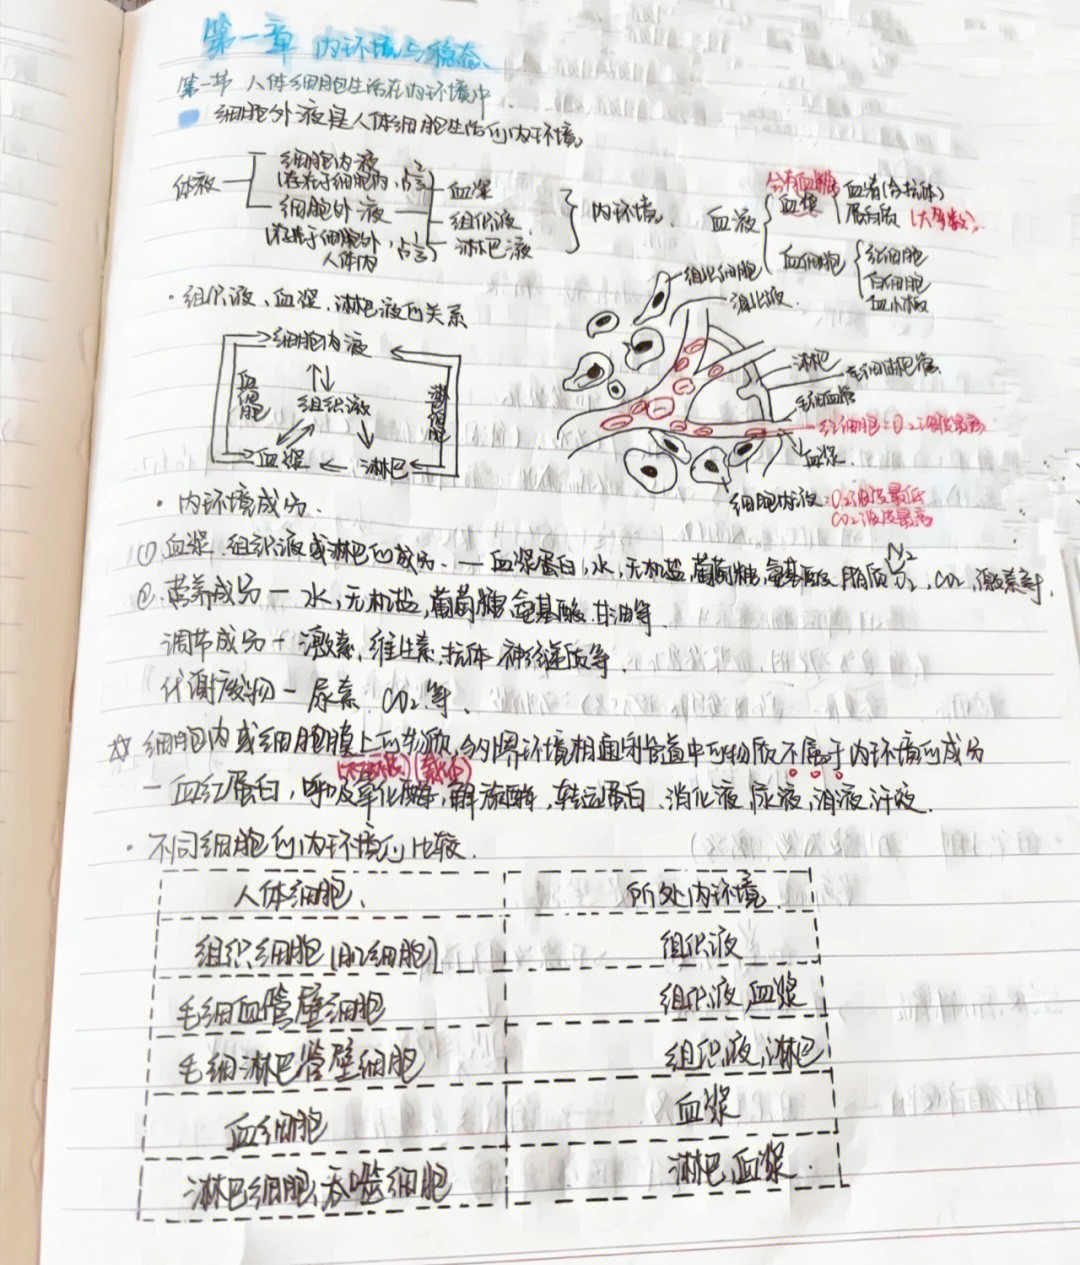 第一章 内环境与稳态
第一节 人体细胞生活在内环境中
细胞外液是人体细胞生活的内环境
体液
细胞内液
(存在于细胞内,占2/3)
细胞外液
(存在于细胞外,占1/3)
人体内
血浆
组织液
淋巴液
内环境
血液
含有血糖
血浆
血清(含抗体)
蛋白质(大多数)
血细胞
红细胞
白细胞
血小板
·组织液、血浆、淋巴液的关系
细胞内液
血细胞
组织液
血浆
淋巴
组织细胞
组织液
淋巴
毛细淋巴管
毛细血管
红细胞:O2浓度最高
血浆
细胞内液:O2浓度最低
CO2浓度最高
·内环境成分
①血浆、组织液或淋巴的成分 — 血浆蛋白,水,无机盐,葡萄糖,氨基酸,脂质,O2,CO2,激素等,
N2
②营养成分 — 水,无机盐,葡萄糖,氨基酸,甘油等
调节成分 — 激素,维生素,抗体,神经递质等
代谢废物 — 尿素、CO2等
☆细胞内或细胞膜上的物质,与外界环境相通的管道中的物质不属于内环境的成分
(载体)
— 血红蛋白,呼吸氧化酶,解旋酶,转运蛋白,消化液,尿液,泪液,汗液
·不同细胞的内环境的比较
人体细胞 所处内环境
组织细胞(肌细胞) 组织液
毛细血管壁细胞 组织液,血浆
毛细淋巴管壁细胞 组织液,淋巴
血细胞 血浆
淋巴细胞,吞噬细胞 淋巴,血浆